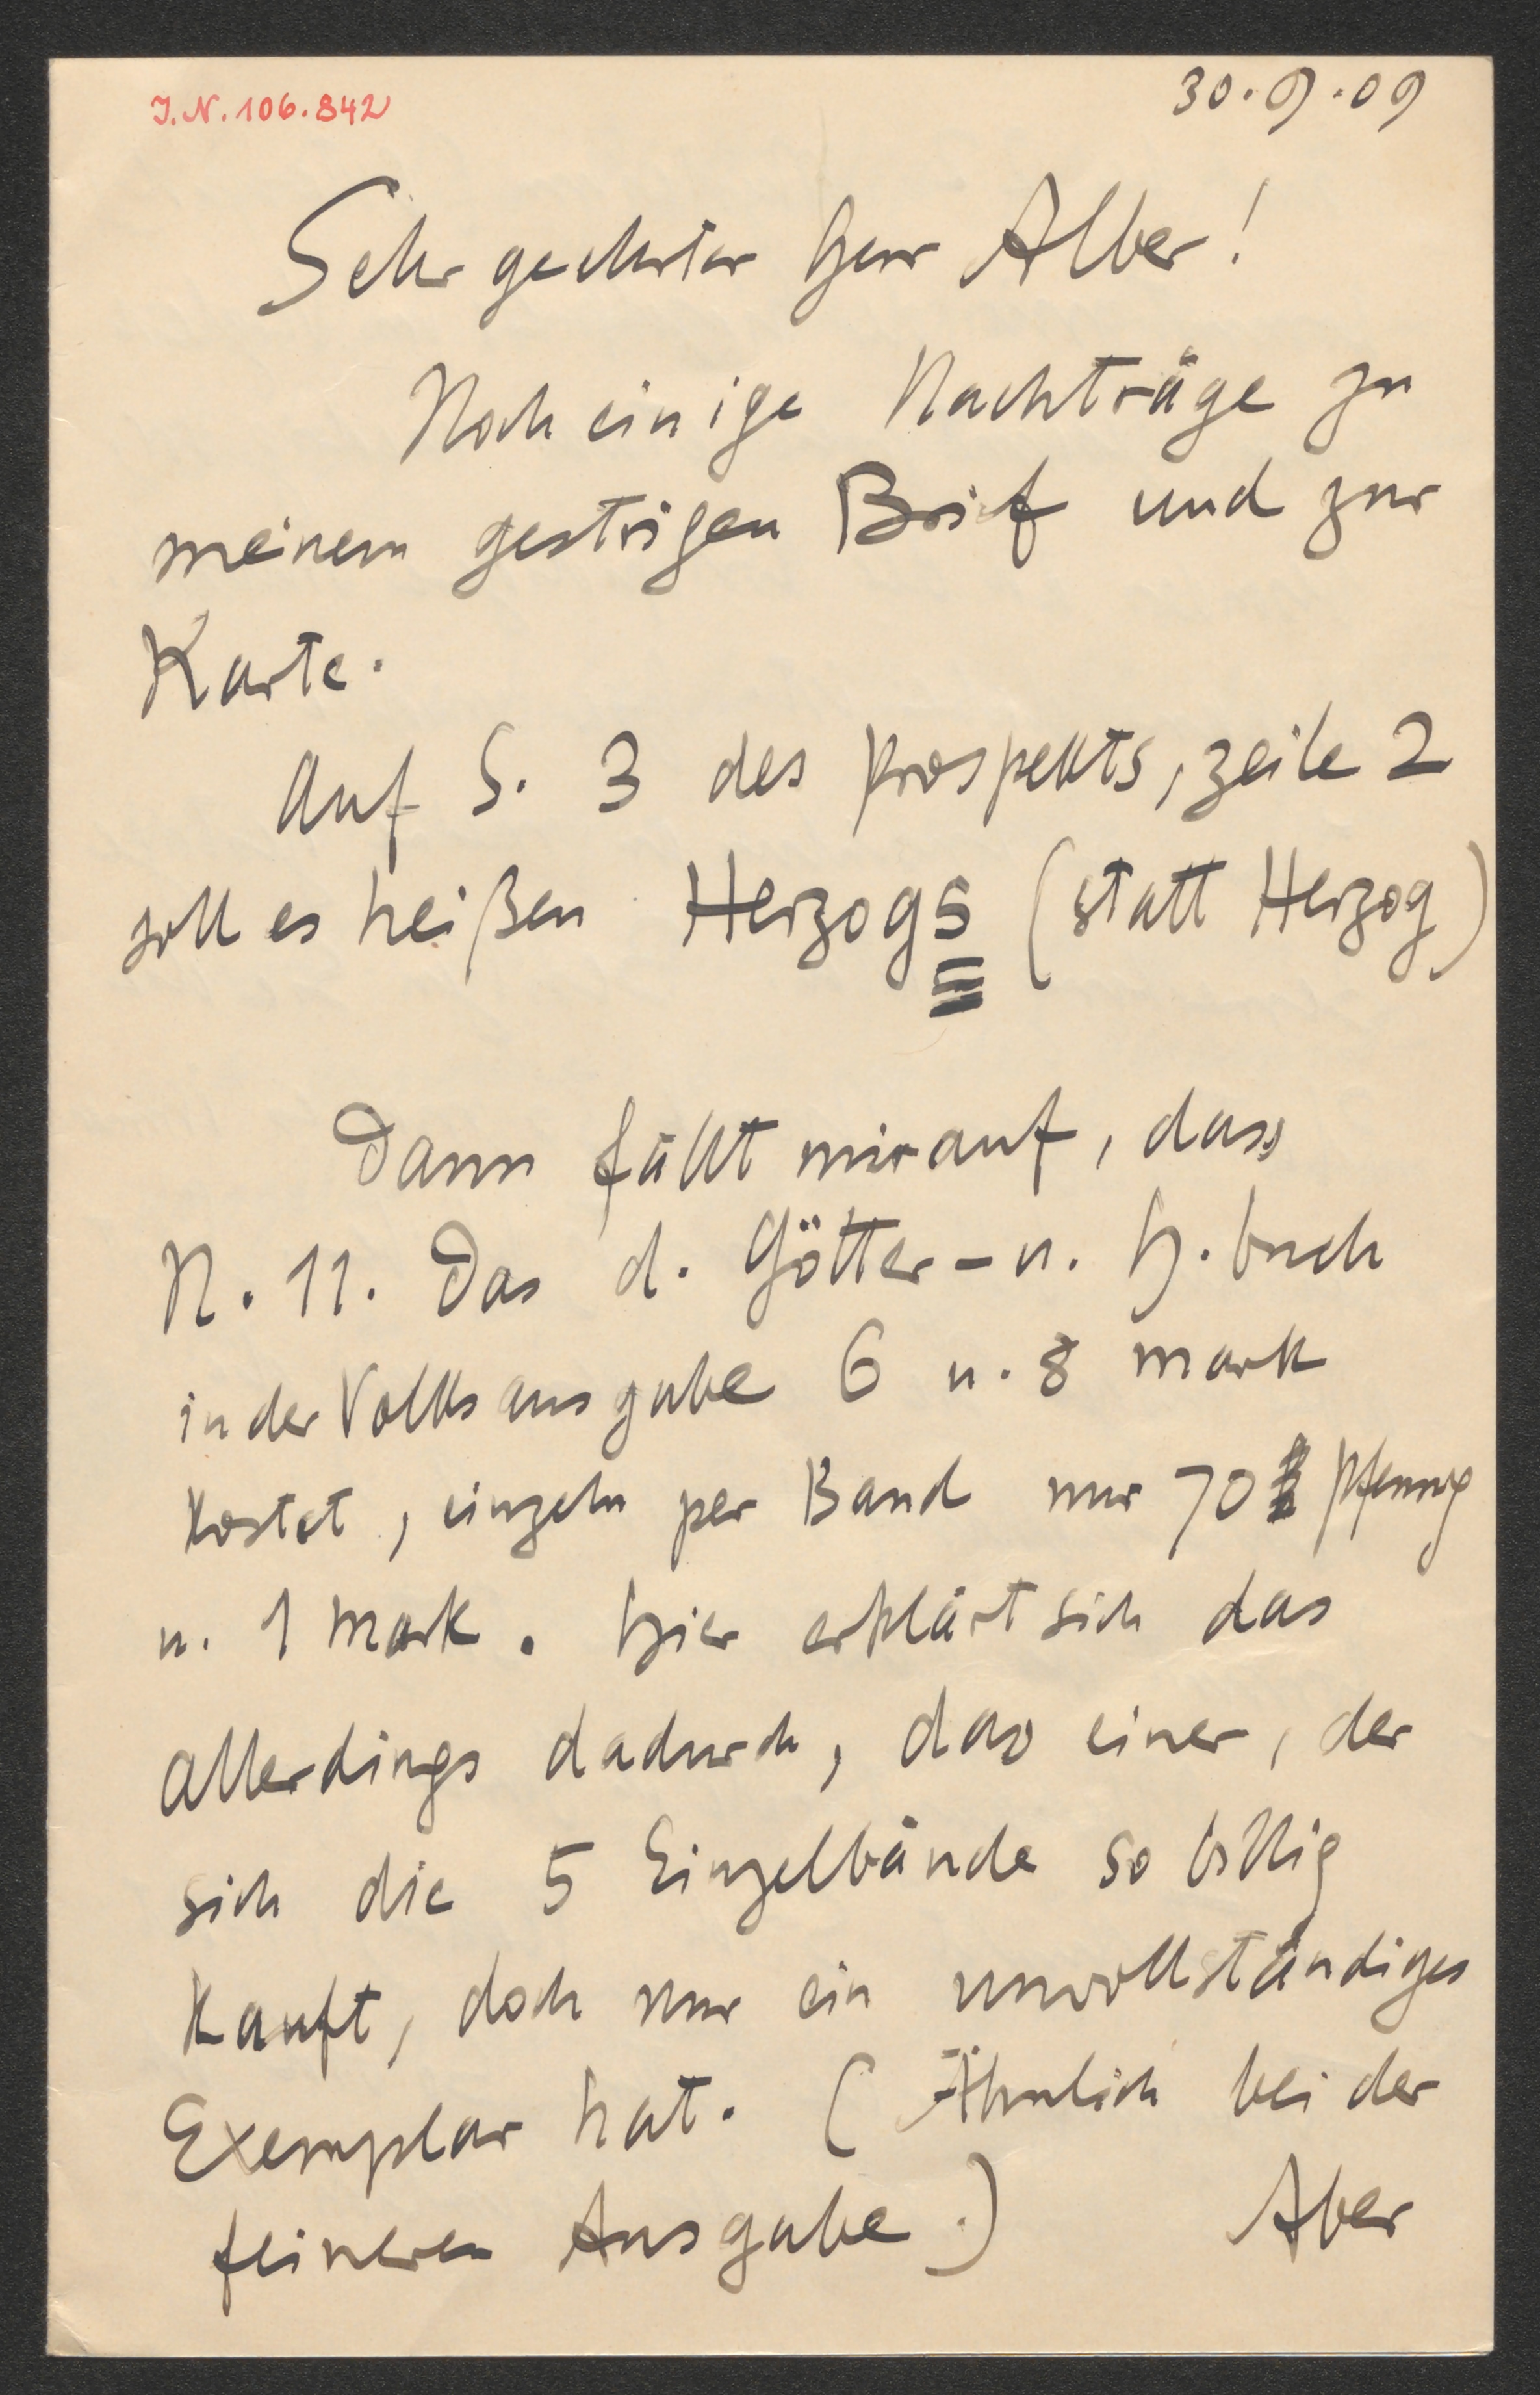 J.N. 106.842
30.9.09
Sehr geehrter Herr Alber!
Noch einige Nachträge zu
meinem gestrigen Brief und zur
Karte.
Auf S. 3 des Prospekts, Zeile 2
soll es heißen Herzogs (statt Herzog)
Dann fällt mir auf, dass
N. 11. Das d. Götter- u. H.buch
in der Volksausgabe 6 u. 8 Mark
kostet, einzeln per Band nur 70 Pfennig
u. 1 Mark. Hier erklärt sich das
allerdings dadurch, dass einer, der
sich die 5 Einzelbände so billig
kauft, doch nur ein unvollständiges
Exemplar hat. (Ähnlich bei der
feineren Ausgabe.) Aber